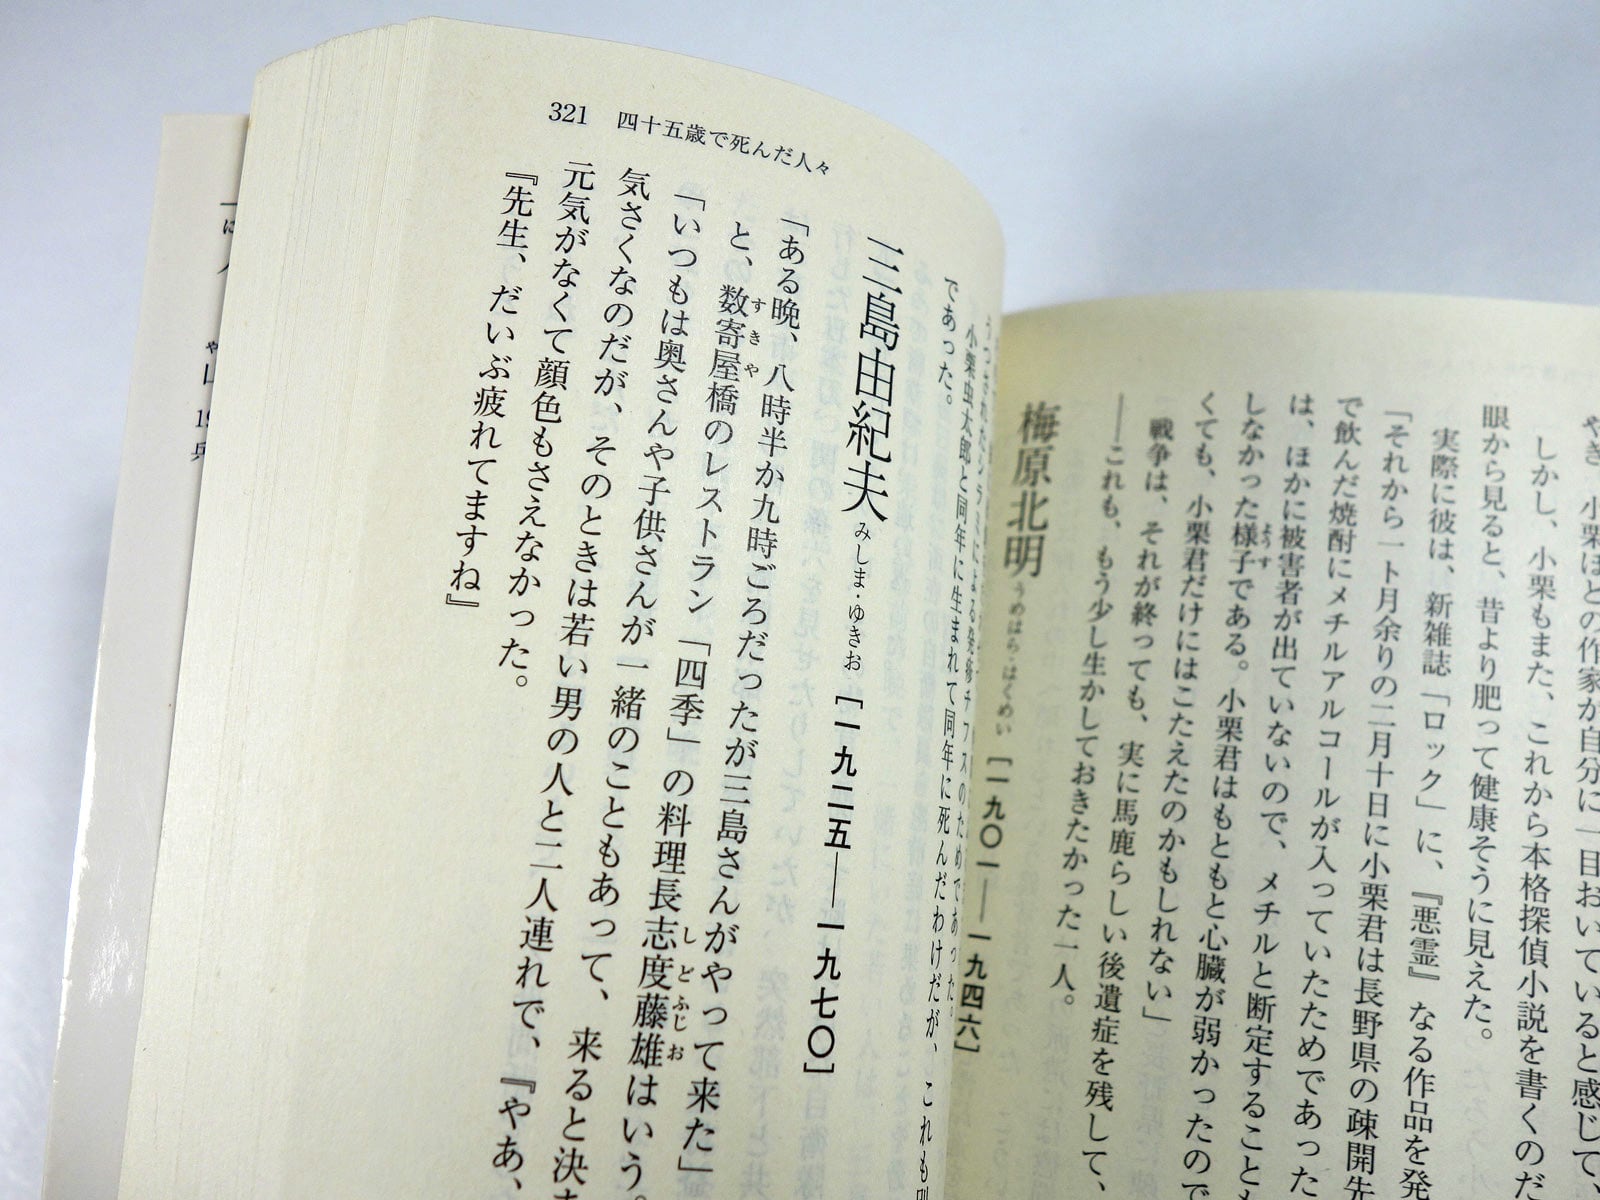 やき、小栗ほどの作家が自分に一目おいていると感じて、
しかし、小栗もまた、これから本格探偵小説を書くのだ
眼から見ると、昔より肥って健康そうに見えた。
実際に彼は、新雑誌「ロック」に、『悪霊』なる作品を発
「それから一ト月余りの二月十日に小栗君は長野県の疎開先
で飲んだ焼酎にメチルアルコールが入っていたためであった
は、ほかに被害者が出ていないので、メチルと断定することも
しなかった様子である。小栗君はもともと心臓が弱かったので
ようす
くても、小栗君だけにはこたえたのかもしれない」
戦争は、それが終っても、実に馬鹿らしい後遺症を残して、
――これも、もう少し生かしておきたかった一人。
梅原北明 うめはら・ほくめい [一九〇一――一九四六]
小栗虫太郎と同年に生まれて同年に死んだわけだが、これも
であった。
321 四十五歳で死んだ人々
三島由紀夫 みしま・ゆきお [一九二五――一九七〇]
「ある晩、八時半か九時ごろだったが三島さんがやって来た」
と、数寄屋橋のレストラン「四季」の料理長志度藤雄はいう。
すきや
しどふじお
「いつもは奥さんや子供さんが一緒のこともあって、来ると決
気さくなのだが、そのときは若い男の人と二人連れで、『やあ、
元気がなくて顔色もさえなかった。
『先生、だいぶ疲れてますね』